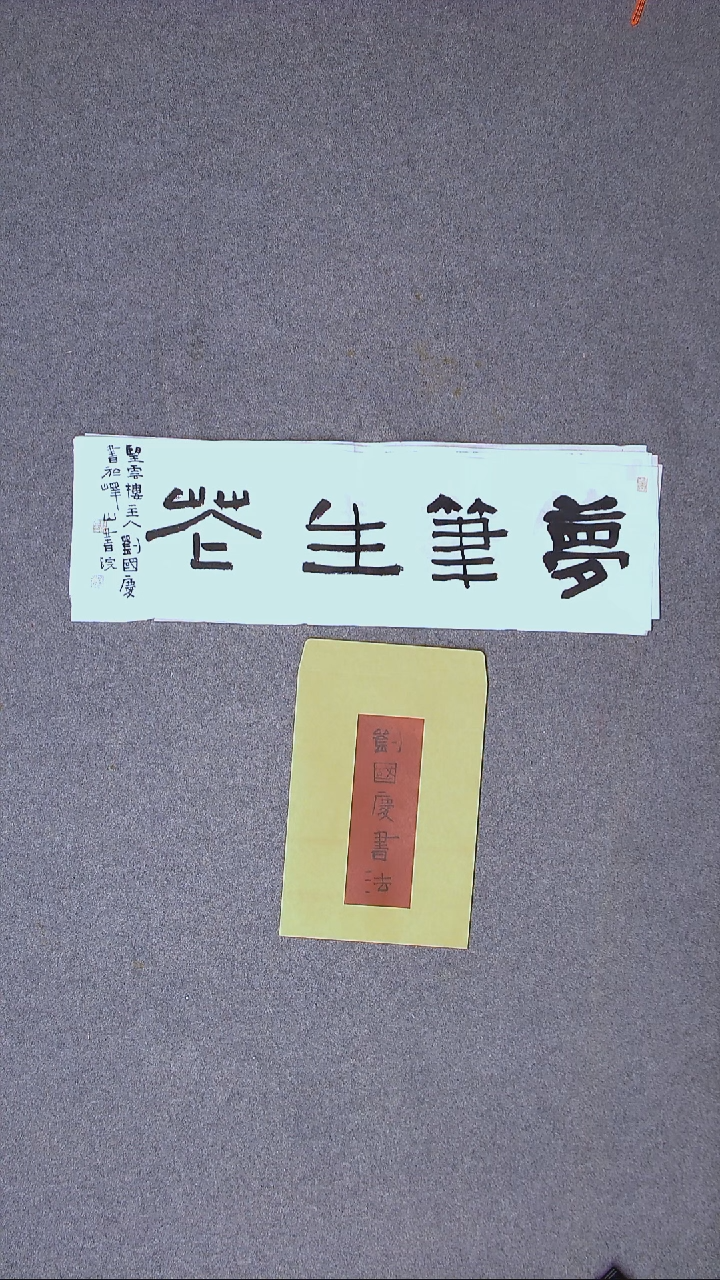 夢筆生花
望雲樓主人劉國慶
書於嶧山書院
劉國慶書法